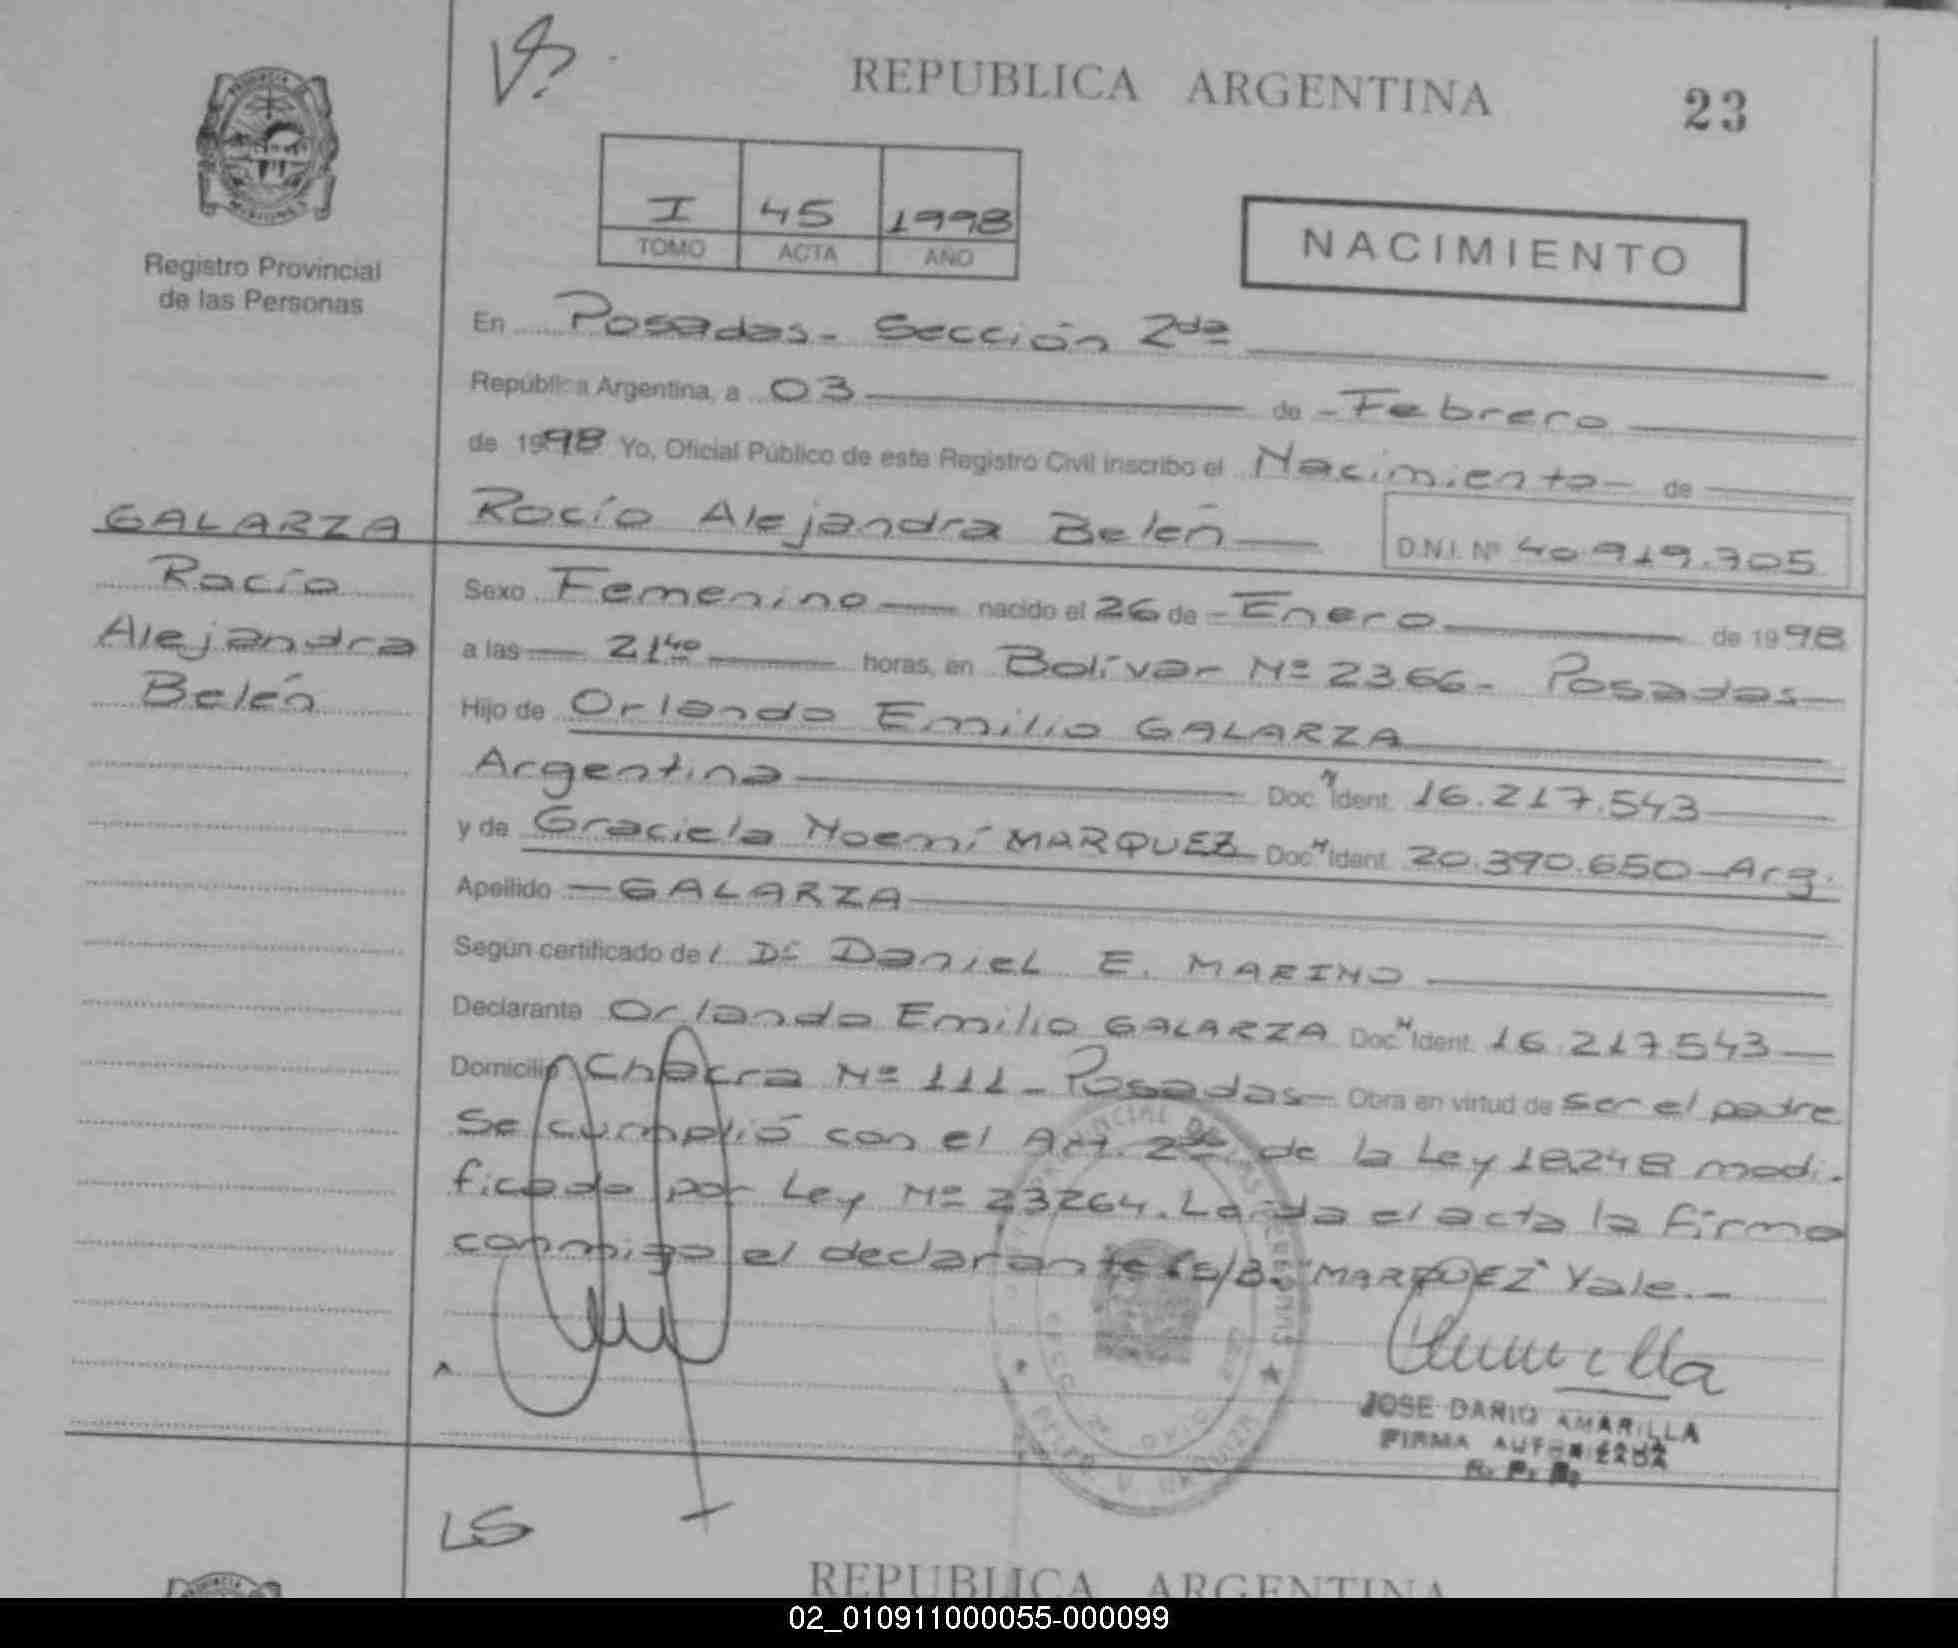 REPUBLICA ARGENTINA
23
I 45 1998
TOMO ACTA AÑO
NACIMIENTO
Registro Provincial
de las Personas
En Posadas - Sección 2da
República Argentina, a 03 de - Febrero
de 1998 Yo, Oficial Público de este Registro Civil inscribo el Nacimiento - de
GALARZA
Rocío
Alejandra
Belén
Rocío Alejandra Belén
D.N.I. Nº 40.919.705
Sexo Femenino nacido el 26 de - Enero de 1998
a las 21 40 horas, en Bolívar Nº 2366 - Posadas
Hijo de Orlando Emilio GALARZA
Argentina Doc. N Ident. 16.217.543
y de Graciela Noemí MARQUEZ Doc. N Ident. 20.390.650 - Arg.
Apellido - GALARZA
Según certificado del Dr Daniel E. MARINO
Declarante Orlando Emilio GALARZA Doc. N Ident. 16.217.543
Domicilio Chacra Nº 111 - Posadas - Obra en virtud de ser el padre
Se cumplió con el Art. 2do de la Ley 18248 modi-
ficado por Ley Nº 23264. Leída el acta la firma
conmigo el declarante S/B. "MARQUEZ" Vale. -
JOSE DARIO AMARILLA
FIRMA AUTORIZADA
R. P. P.
LS
REPUBLICA ARGENTINA
02_010911000055-000099